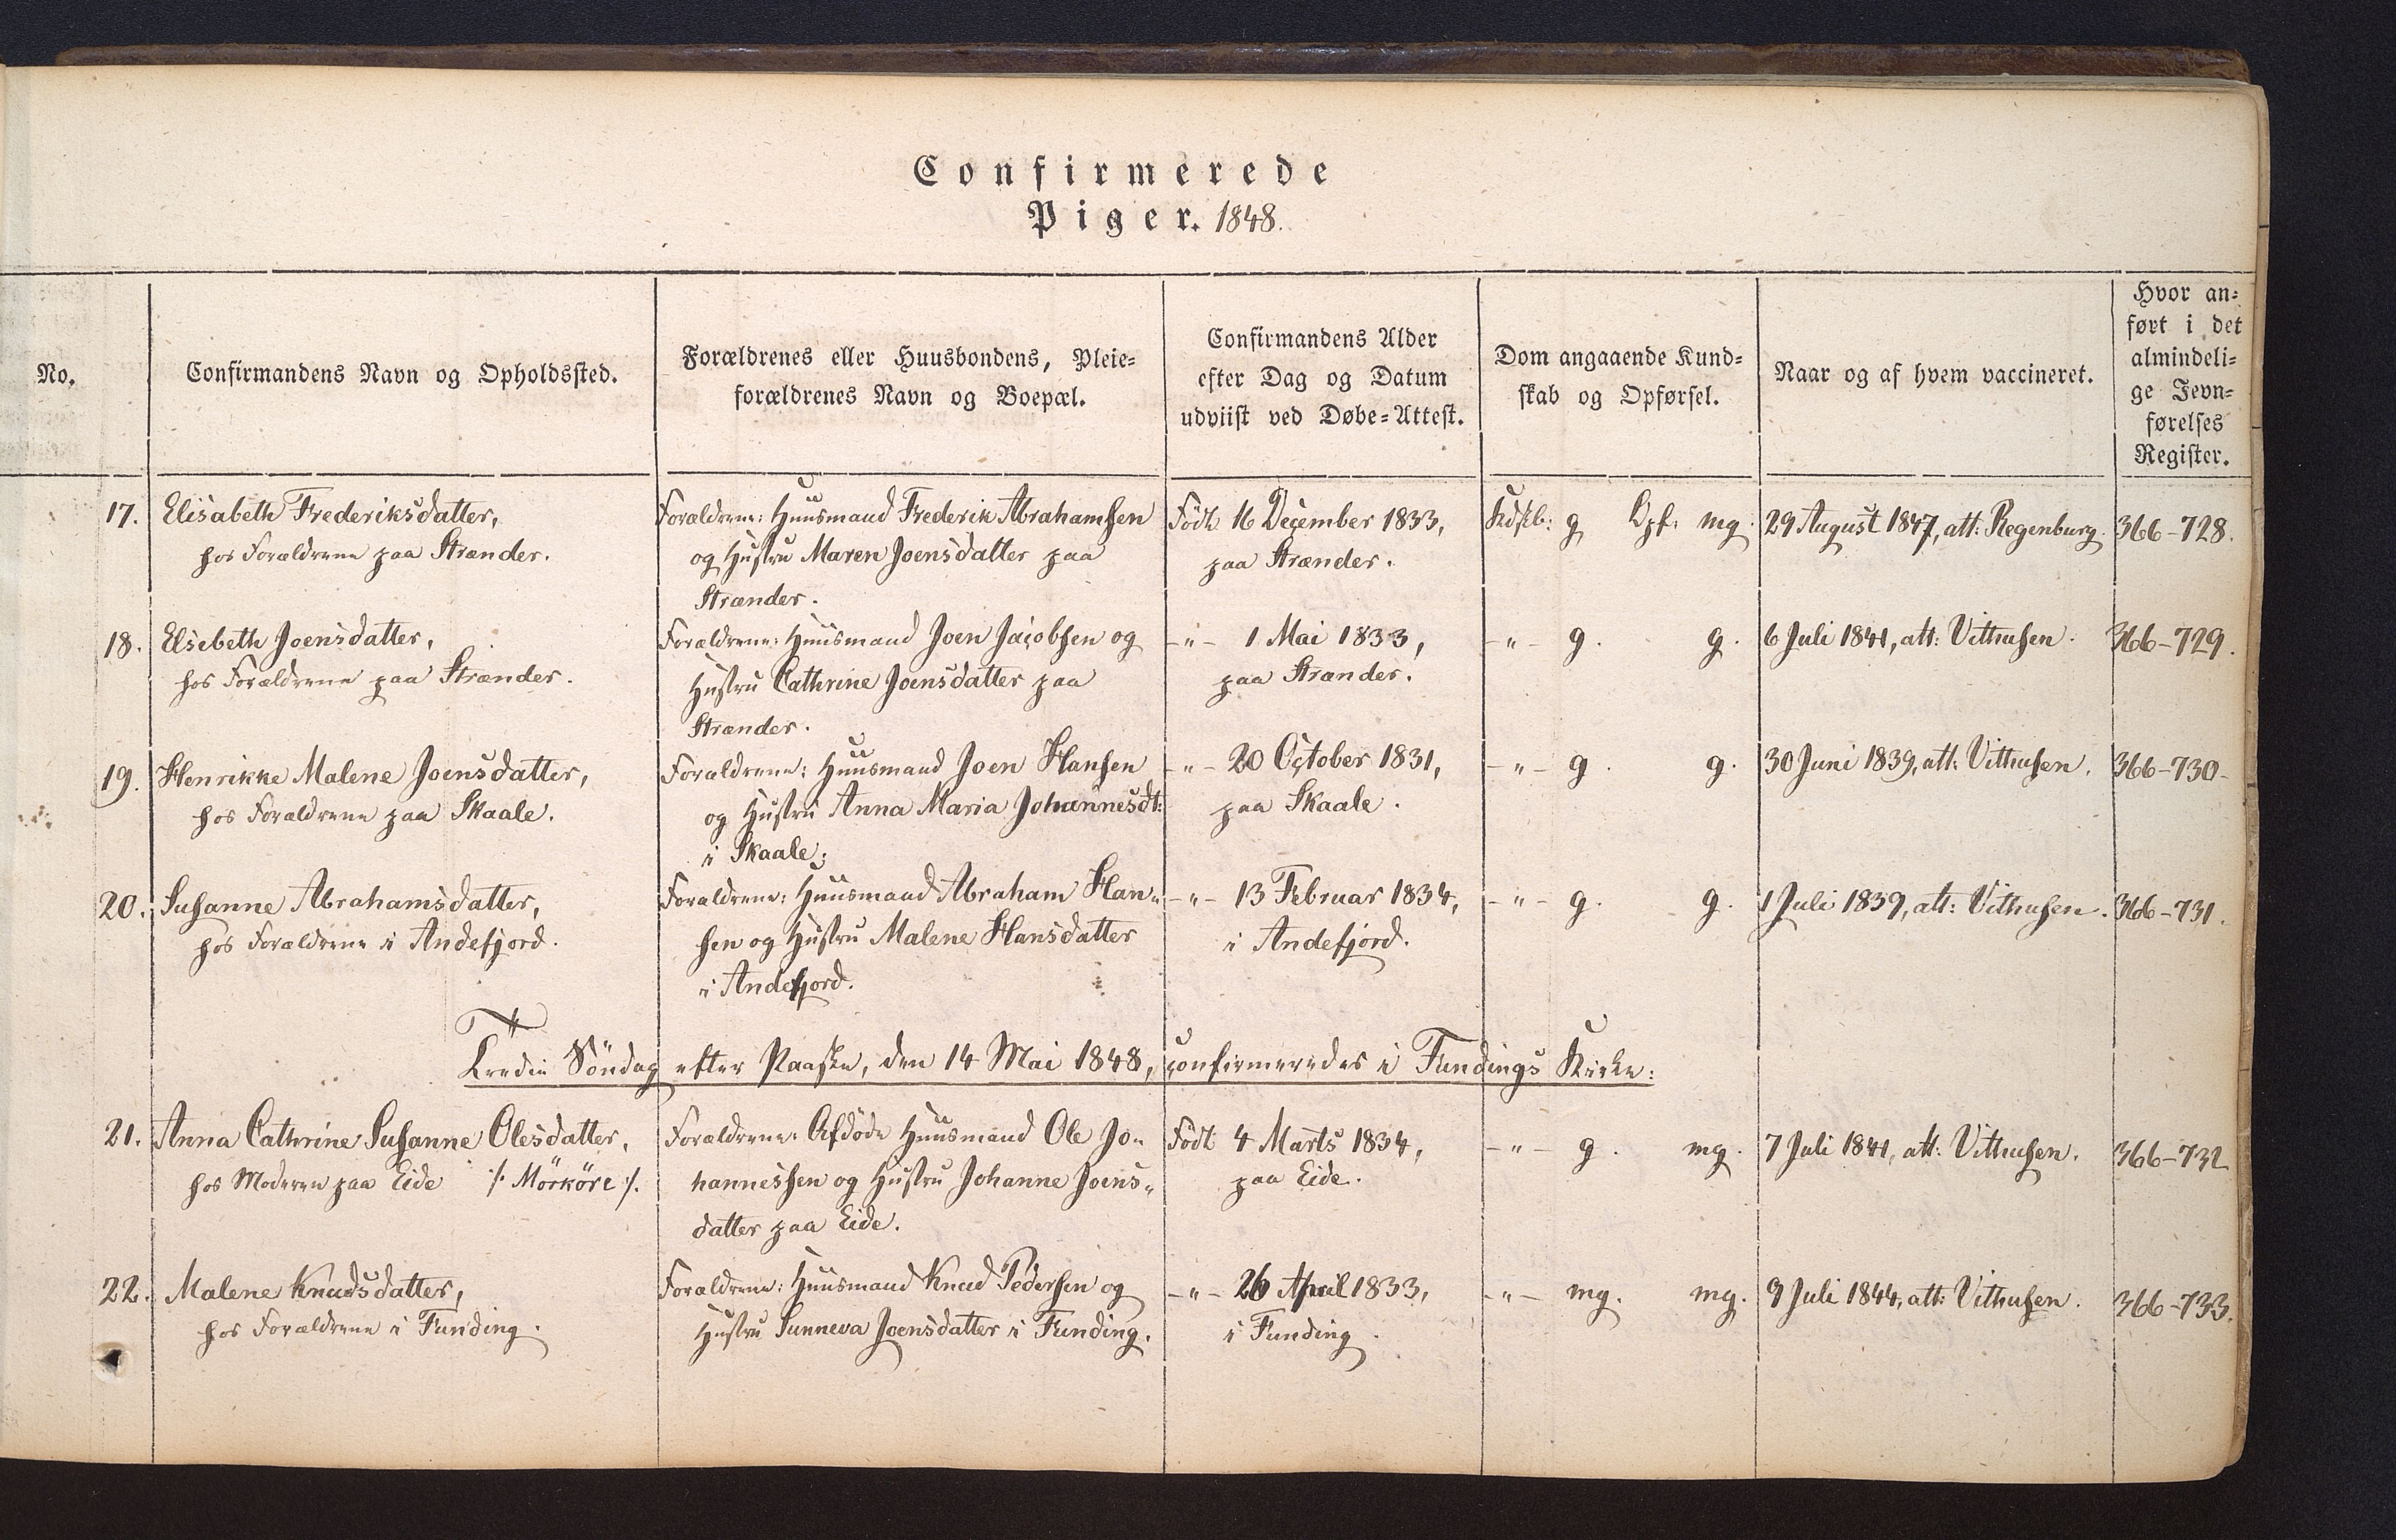 Confirmerede
Piger. 1848.
No.
Confirmandens Navn og Opholdssted.
Forældrenes eller Huusbondens, Pleie=
forældrenes Navn og Boepæl.
Confirmandens Alder
efter Dag og Datum
udviist ved Døbe=Attest.
Dom angaaende Kund=
skab og Opførsel.
Naar og af hvem vaccineret.
Hvor an=
ført i det
almindeli=
ge Jevn=
førelses
Register.
17.
Elisabeth Frederiksdatter,
hos Forældrene paa Strænder.
Forældrene: Huusmand Frederik Abrahamsen
og Hustru Maren Joensdatter paa
Strænder.
Födt 16 December 1833,
paa Strænder.
Kdskb: g Opf: mg.
29 August 1847, att: Regenburg.
366-728.
18.
Elsebeth Joensdatter,
hos Forældrene paa Strænder.
Forældrene: Huusmand Joen Jacobsen og
Hustru Cathrine Joensdatter paa
Strænder.
-"- 1 Mai 1833,
paa Strænder.
-"- g. g.
6 Juli 1841, att: Vithusen.
366-729.
19.
Henrikke Malene Joensdatter,
hos Forældrene paa Skaale.
Forældrene: Huusmand Joen Hansen
og Hustru Anna Maria Johannesdt:
i Skaale;
-"- 20 October 1831,
paa Skaale.
-"- g. g.
30 Juni 1839, att: Vithusen.
366-730-
20.
Susanne Abrahamsdatter,
hos Forældrene i Andefjord.
Forældrene: Huusmand Abraham Han-
sen og Hustru Malene Hansdatter
i Andefjord.
-"- 13 Februar 1834,
i Andefjord.
-"- g. g.
1 Juli 1839, att: Vithusen.
366-731.
Tredie Söndag efter Paaske, den 14 Mai 1848, confirmeredes i Fundings Kirke:
21.
Anna Cathrine Susanne Olesdatter,
hos Moderen paa Eide ⁒ Mörköre ⁒.
Forældrene: Afdöde Huusmand Ole Jo-
hannessen og Hustru Johanne Joens-
datter paa Eide.
Födt 4 Marts 1834,
paa Eide.
-"- g. mg.
7 Juli 1841, att: Vithusen.
366-732
22.
Malene Knudsdatter,
hos Forældrene i Funding.
Forældrene: Huusmand Knud Pedersen og
Hustru Sunneva Joensdatter i Funding.
-"- 26 April 1833,
i Funding.
-"- mg. mg.
9 Juli 1844, att: Vithusen.
366-733.